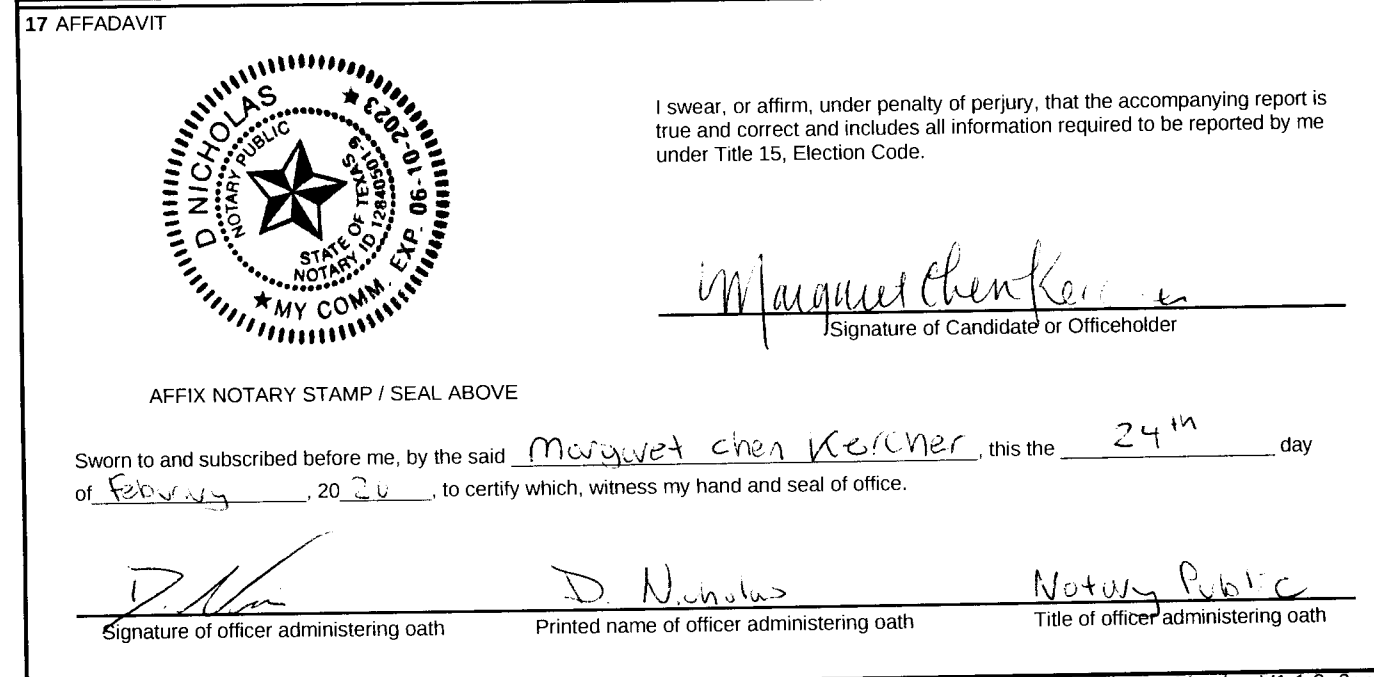 17 AFFADAVIT
D NICHOLAS
NOTARY PUBLIC
STATE OF TEXAS
NOTARY ID 12840501-9
★ MY COMM. EXP. 06-10-2023 ★
I swear, or affirm, under penalty of perjury, that the accompanying report is
true and correct and includes all information required to be reported by me
under Title 15, Election Code.
Margaret Chen Kercher
Signature of Candidate or Officeholder
AFFIX NOTARY STAMP / SEAL ABOVE
Sworn to and subscribed before me, by the said Margaret chen Kercher, this the 24th day
of Feburary, 20 20, to certify which, witness my hand and seal of office.
D. Nicholas Notary Public
Signature of officer administering oath Printed name of officer administering oath Title of officer administering oath